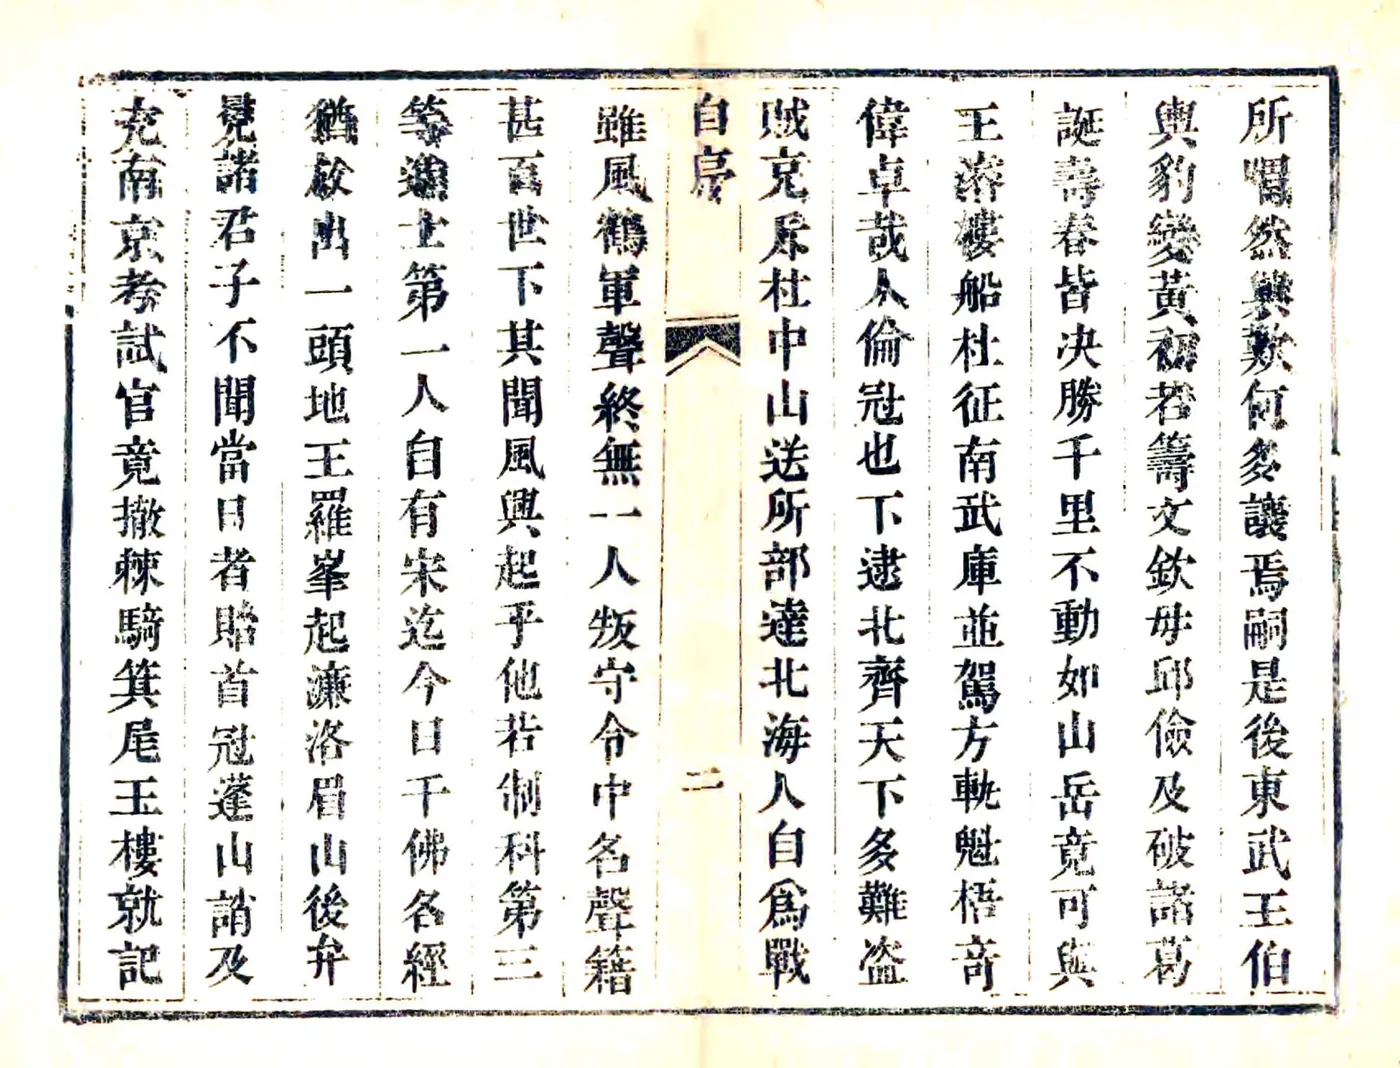 所喟然興歎何多讓焉嗣是後東武王伯
輿豹變黃初若籌文欽毋邱儉及破諸葛
誕壽春皆決勝千里不動如山岳竟可與
王濬樓船杜征南武庫並駕方軌魁梧奇
偉卓哉人倫冠也下逮北齊天下多難盜
賊充斥杜中山送所部達北海人自爲戰
自序
二
雖風鶴軍聲終無一人叛守令中名聲籍
甚百世下其聞風興起乎他若制科第三
等進士第一人自有宋迄今日千佛名經
猶放出一頭地王羅峯起濂洛眉山後弁
冕諸君子不聞當日者貽首冠蓬山誚及
充南京考試官竟撤棘騎箕尾玉樓就記